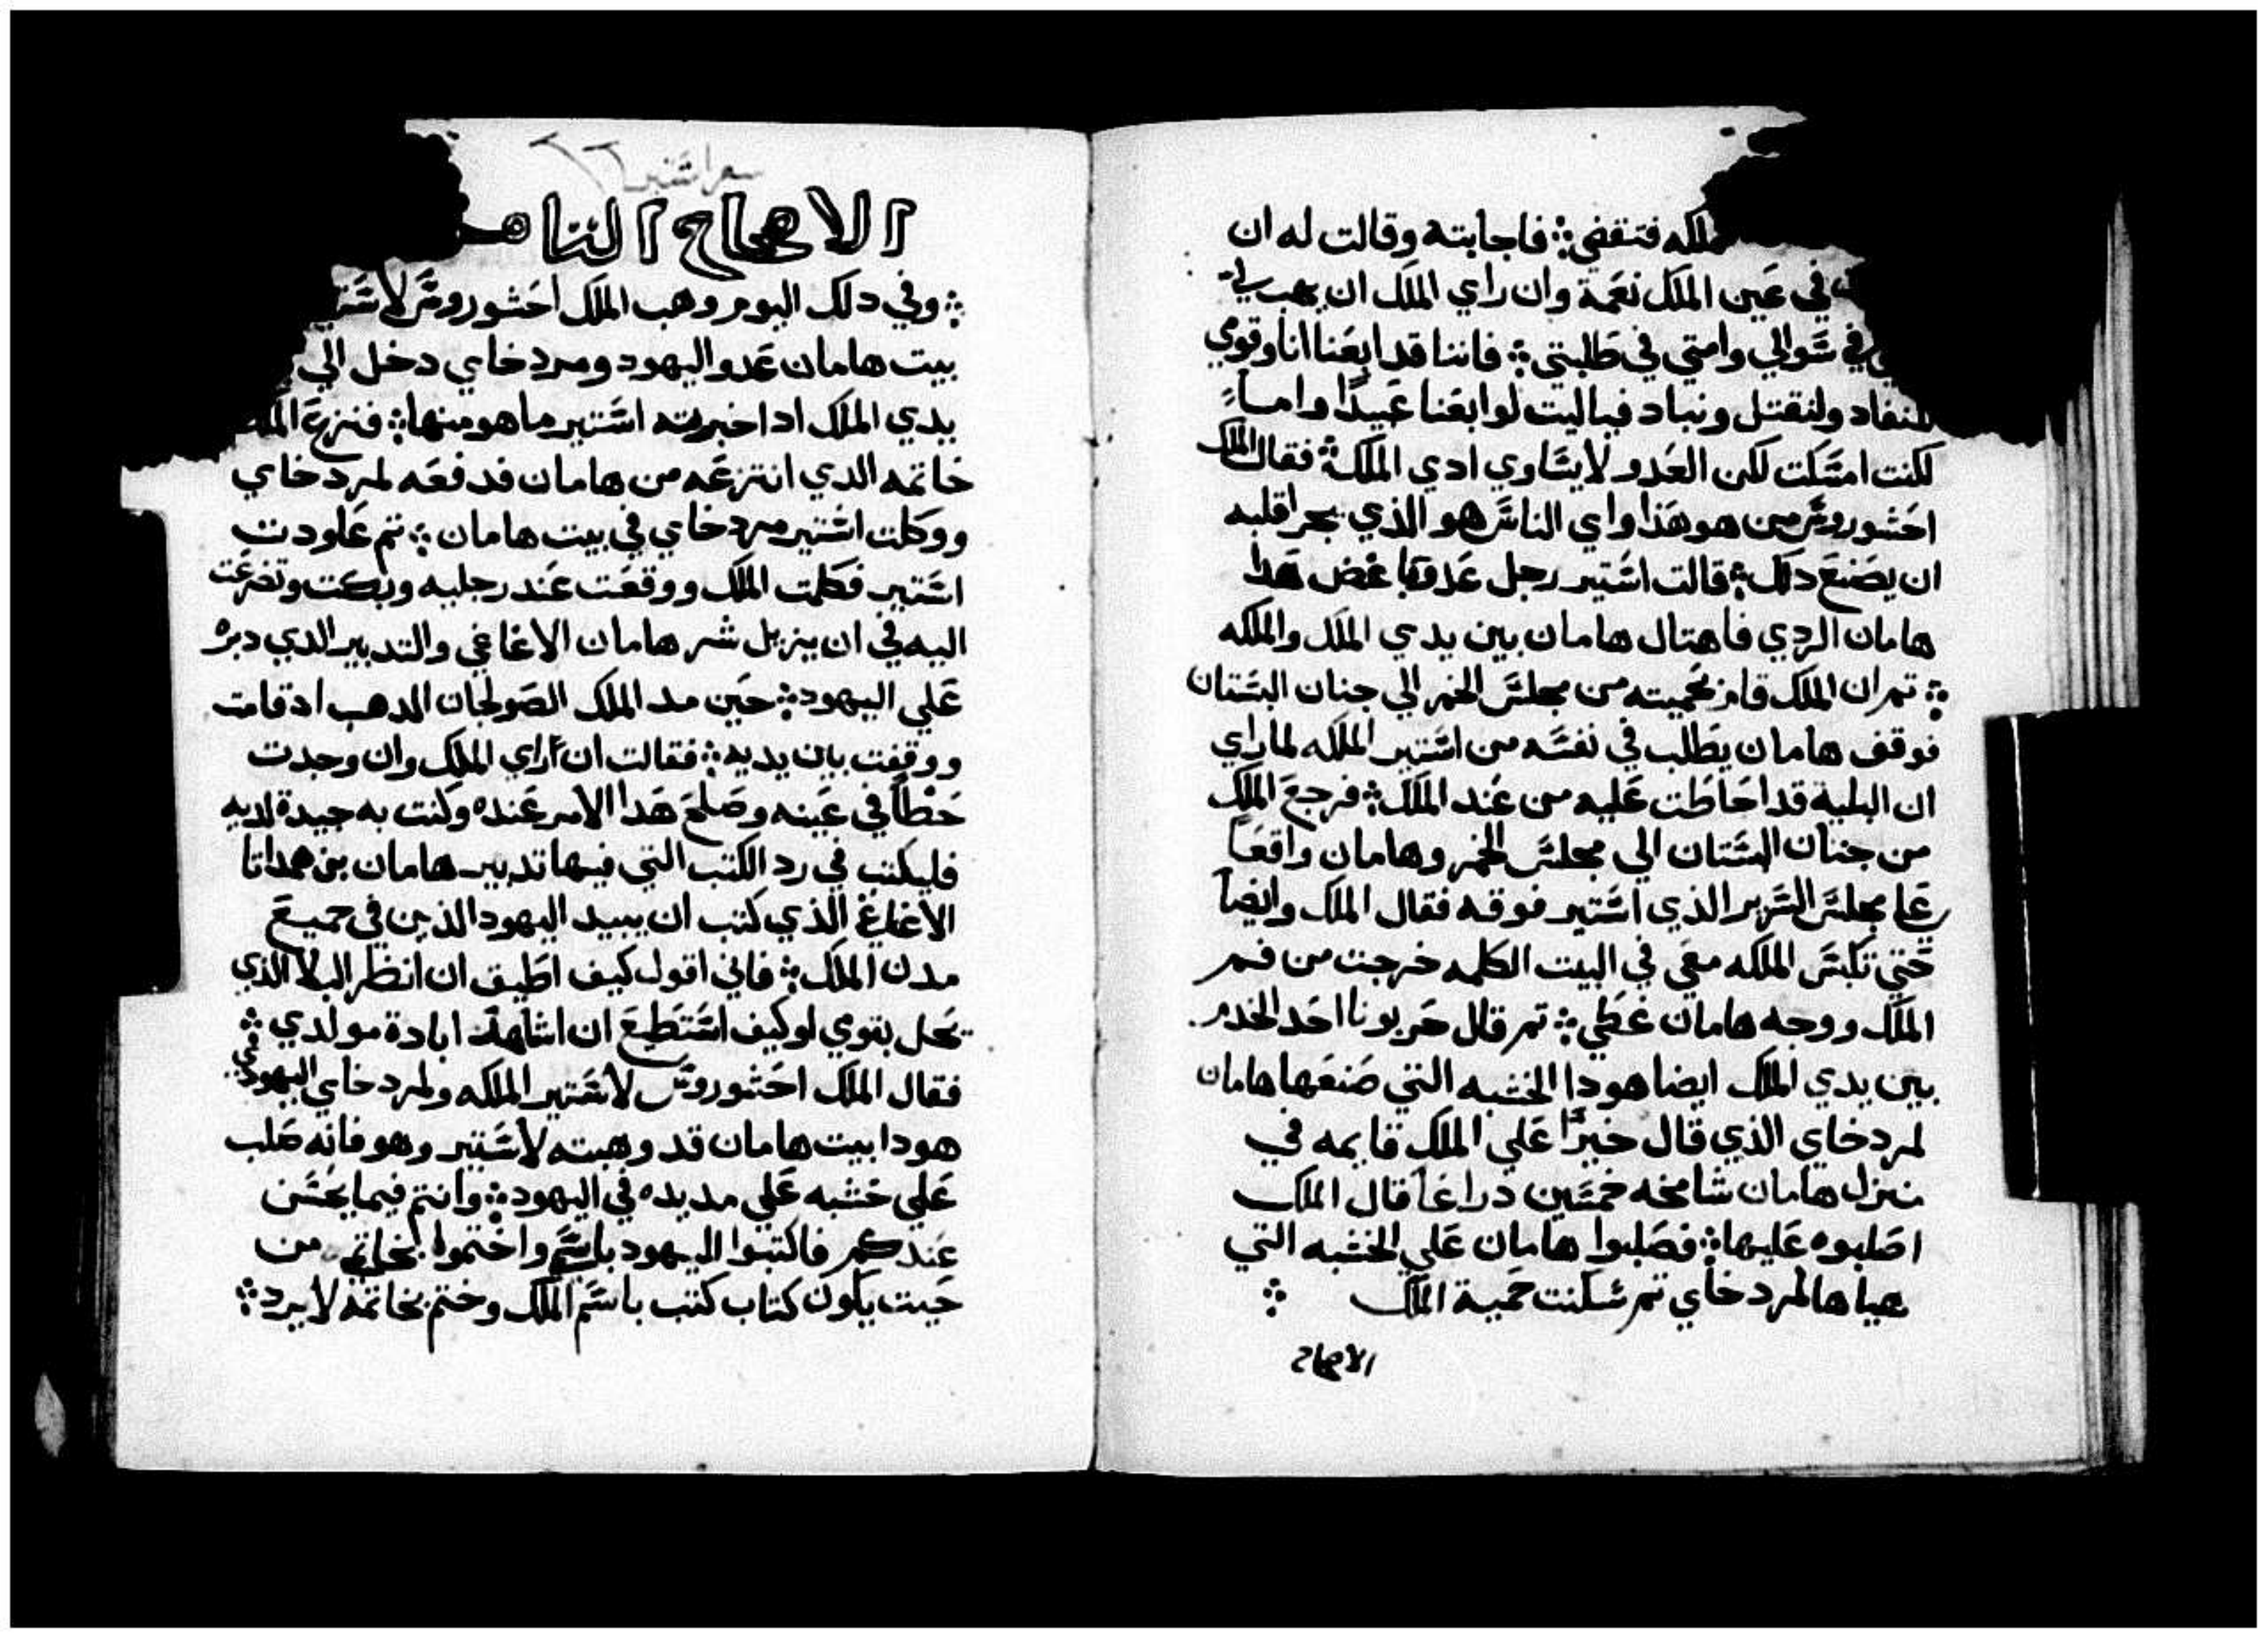 ملكه فتقضي ܀ فاجابته وقالت له ان
في عين الملك نعمة وان راي الملك ان يهب لي
في سوالي وامتي في طلبتي ܀ فاننا قد ابعنا انا وقومي
للنفاد ولنقتل ونباد فياليت لو ابعنا عبيدًا واماً
لكنت امسكت لكن العدو لا يساوي ادي الملك ܀ فقال الملك
احشوروش من هو هذا واي الناس هو الذي يجرا قلبه
ان يصنع دلك ܀ قالت استير رجل عدو هدا
هامان الردي فاهتال هامان بين يدي الملك والملكه
܀ تم ان الملك قام بحميته من مجلس الخمر الي جنان البستان
فوقف هامان يطلب في نفسه من استير الملكه لما راي
ان البلية قد احاطت عليه من عند الملك ܀ فرجع الملك
من جنان البستان الي مجلس الخمر وهامان واقعاً
علي مجلس السرير الذي استير فوقه فقال الملك وايضاً
حتي تكبس الملكه معي في البيت الكلمه خرجت من فم
الملك ووجه هامان غطي ܀ تم قال حربونا احد الخدم
بين يدي الملك ايضا هودا الخشبه التي صنعها هامان
لمردخاي الذي قال خيرًا علي الملك قايمه في
منزل هامان شامخه خمسين دراعاً قال الملك
اصلبوه عليها ܀ فصلبوا هامان علي الخشبه التي
هياها لمردخاي تم سكنت حمية الملك ܀
الاصحاح
سفر استير
الاصحاح الثامن
܀ وفي دلك اليوم وهب الملك احشوروش لاستير
بيت هامان عدو اليهود ومردخاي دخل الي
يدي الملك اد اخبرته استير ما هو منها ܀ فنزع الملك
خاتمه الدي انتزعه من هامان فدفعه لمردخاي
ووكلت استير مردخاي في بيت هامان ܀ تم عاودت
استير فكلمت الملك ووقعت عند رجليه وبكت وتضرعت
اليه في ان يزيل شر هامان الاغاغي والتدبير الدي دبره
علي اليهود ܀ حين مد الملك الصولجان الدهب اد قامت
ووقفت بين يديه ܀ فقالت ان راي الملك وان وجدت
حظاً في عينه وصلح هدا الامر عنده وكنت به جيدة لديه
فليكتب في رد الكتب التي فيها تدبير هامان بن همداتا
الاغاغي الذي كتب ان يبيد اليهود الذين في جميع
مدن الملك ܀ فاني اقول كيف اطيق ان انظر البلا الذي
يحل بقومي او كيف استطيع ان اشاهد ابادة مولدي ܀
فقال الملك احشوروش لاستير الملكه ولمردخاي اليهودي
هودا بيت هامان قد وهبته لاستير وهو فانه صلب
علي خشبه علي مد يده في اليهود ܀ وانتم فيما يحسن
عندكم فاكتبوا اليهود باسم واختموا بخاتم من
حيت يكون كتاب كتب باسم الملك وختم بخاتمه لا يرد ܀